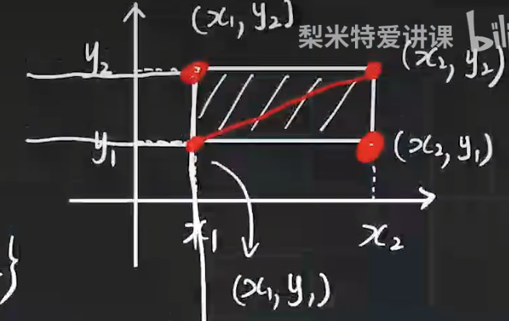 (x₁, y₂)
梨米特爱讲课 bili
y₂
(x₂, y₂)
y₁
(x₂, y₁)
x₁
x₂
}
(x₁, y₁)